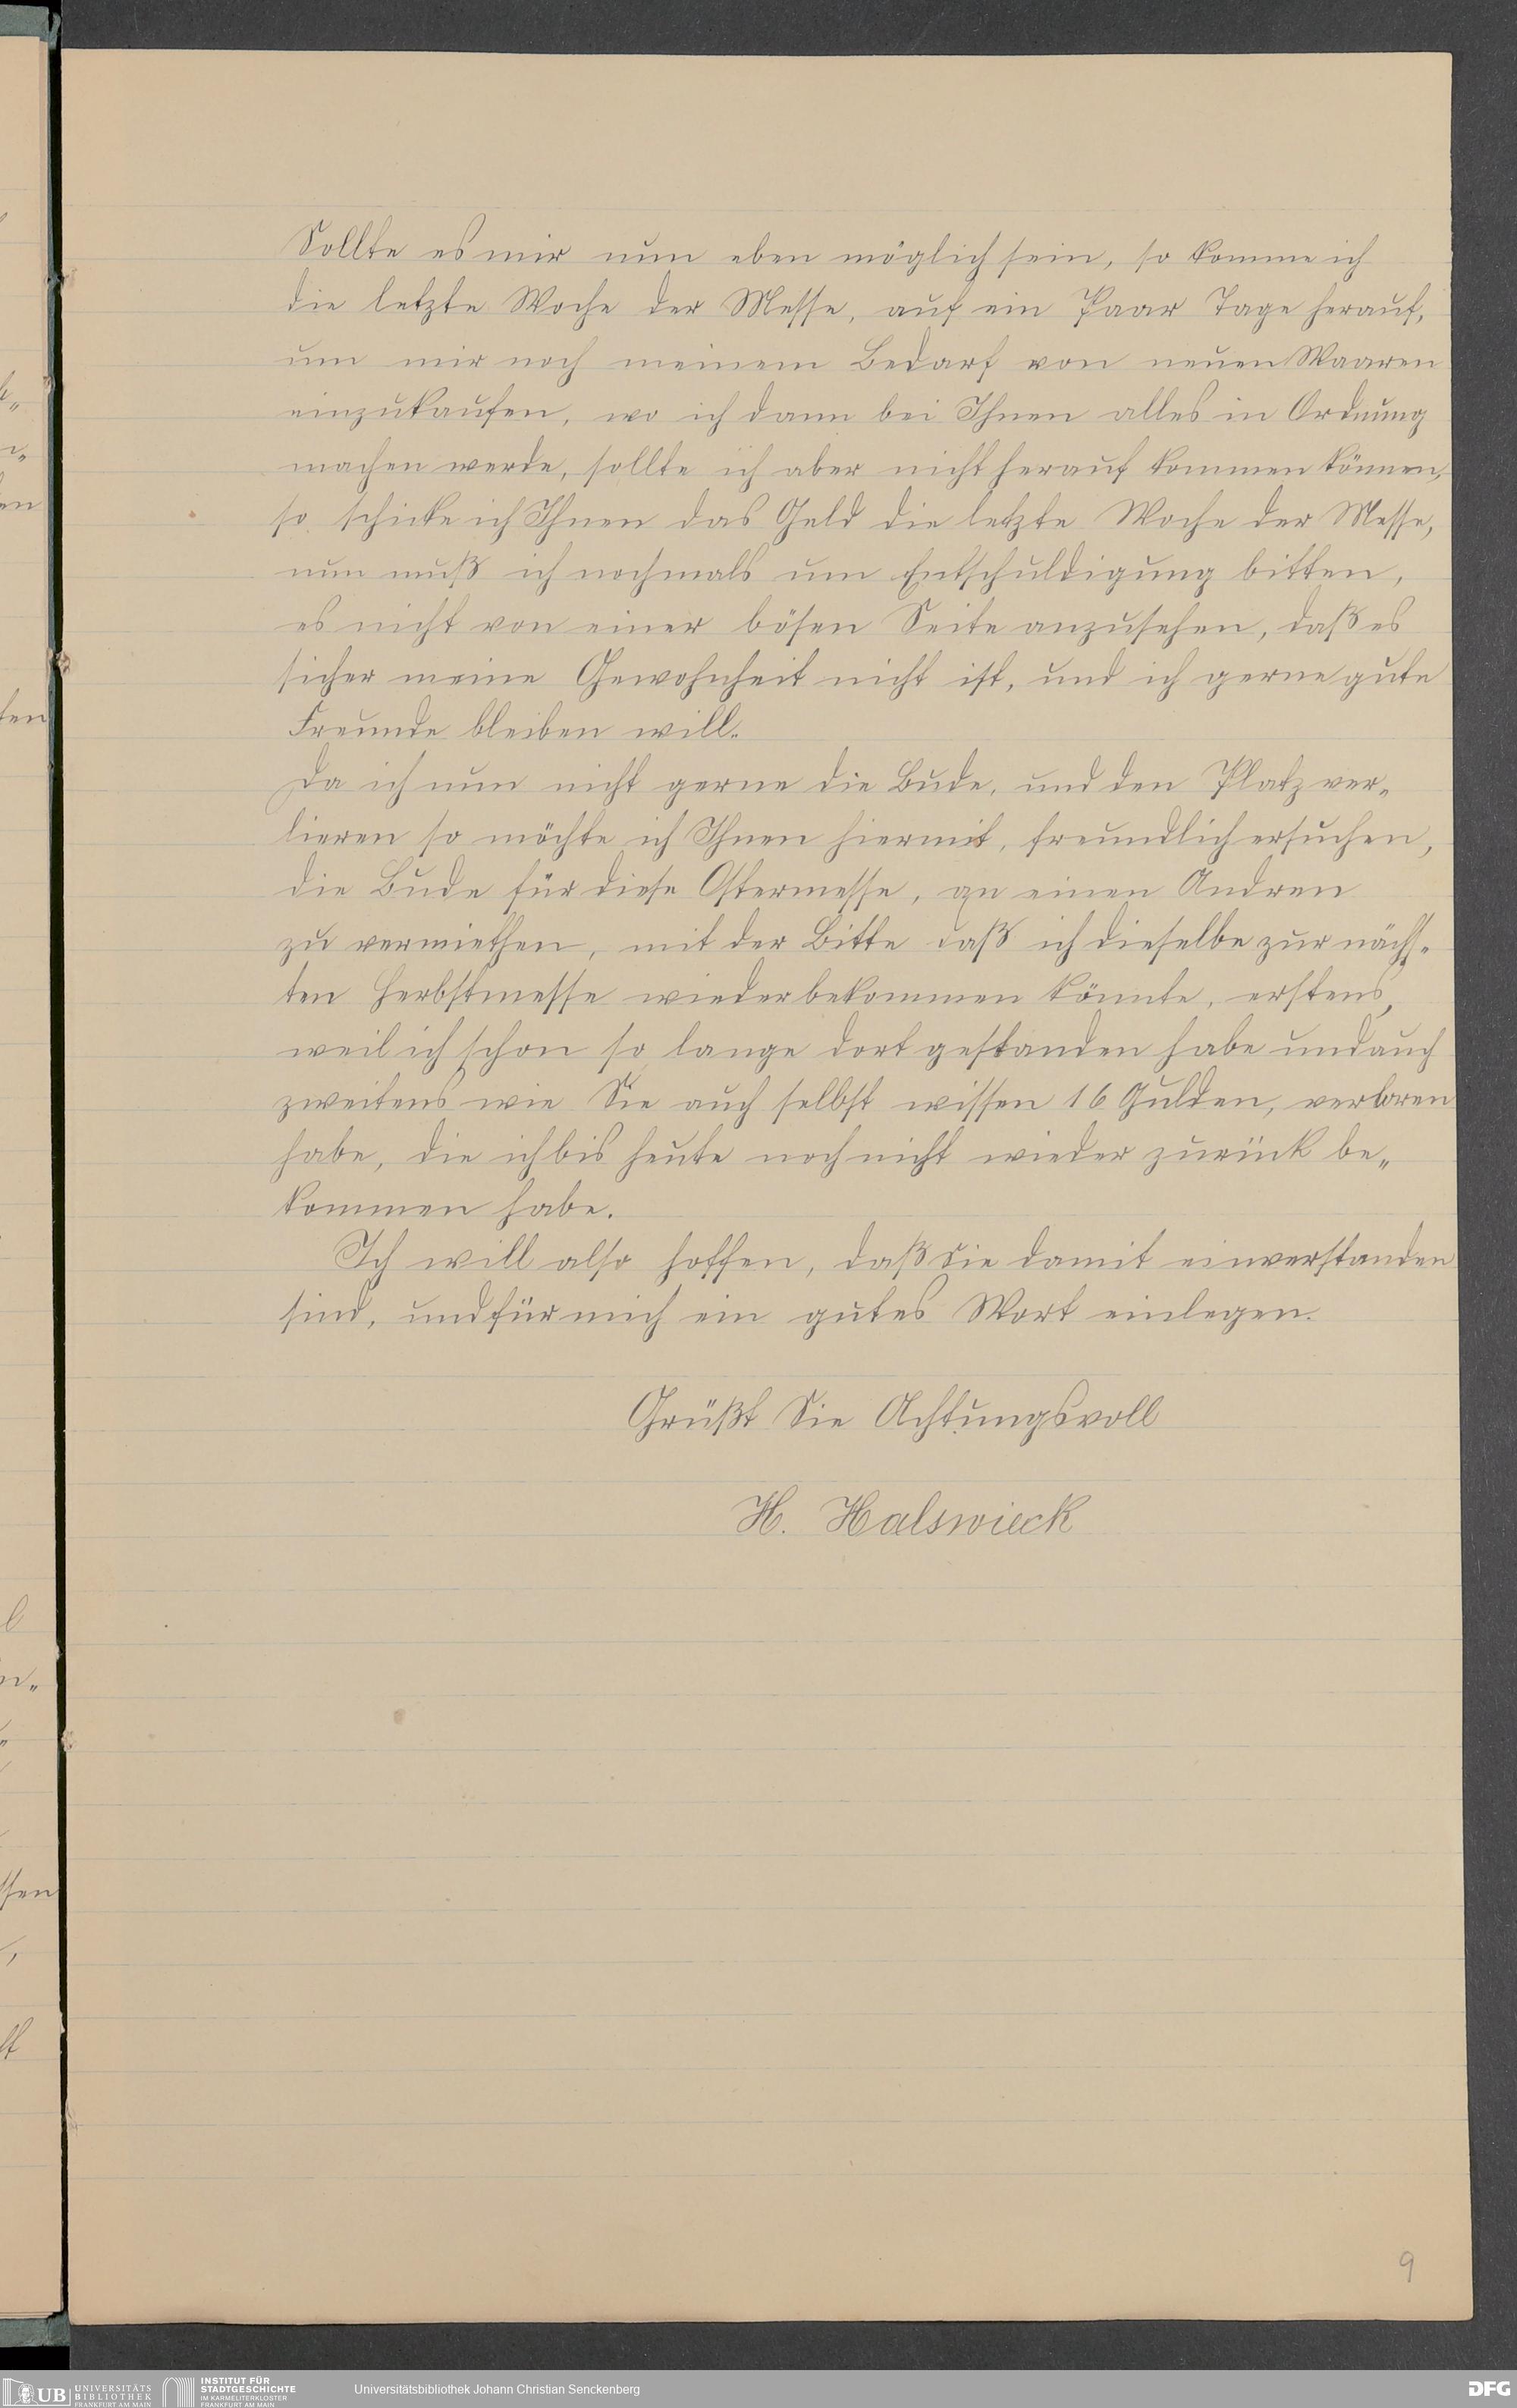 Sollte es mir nun eben möglich sein, so komme ich
die letzte Woche der Messe, auf ein Paar Tage herauf,
um mir noch meinem Bedarf von neuen Waaren
einzukaufen, wo ich dann bei Ihnen alles in Ordnung
machen werde, sollte ich aber nicht herauf kommen können,
so schicke ich Ihnen das Geld die letzte Woche der Messe,
nun muß ich nochmals um Entschuldigung bitten,
es nicht von einer bösen Seite anzusehen, daß es
sicher meine Gewohnheit nicht ist, und ich gerne gute
Freunde bleiben will.
Da ich nun nicht gerne die Bude, und den Platz ver„
lieren so möchte ich Ihnen hiermit, freundlich ersuchen,
die Bude für diese Ostermesse, an einen Andren
zu vermiethen, mit der Bitte daß ich dieselbe zur näch„
ten Herbstmesse wiederbekommen könnte, erstens,
weil ich schon so lange dort gestanden habe und auch
zweitens wie Sie auch selbst wissen 16 Gulden, verloren
habe, die ich bis heute noch nicht wieder zurück be„
kommen habe.
Ich will also hoffen, daß Sie damit einverstanden
sind, und für mich ein gutes Wort einlegen.
Grüßt Sie Achtungsvoll
H. Halswieck
9
UB UNIVERSITÄTS
BIBLIOTHEK
FRANKFURT AM MAIN
INSTITUT FÜR
STADTGESCHICHTE
IM KARMELITERKLOSTER
FRANKFURT AM MAIN
Universitätsbibliothek Johann Christian Senckenberg
DFG